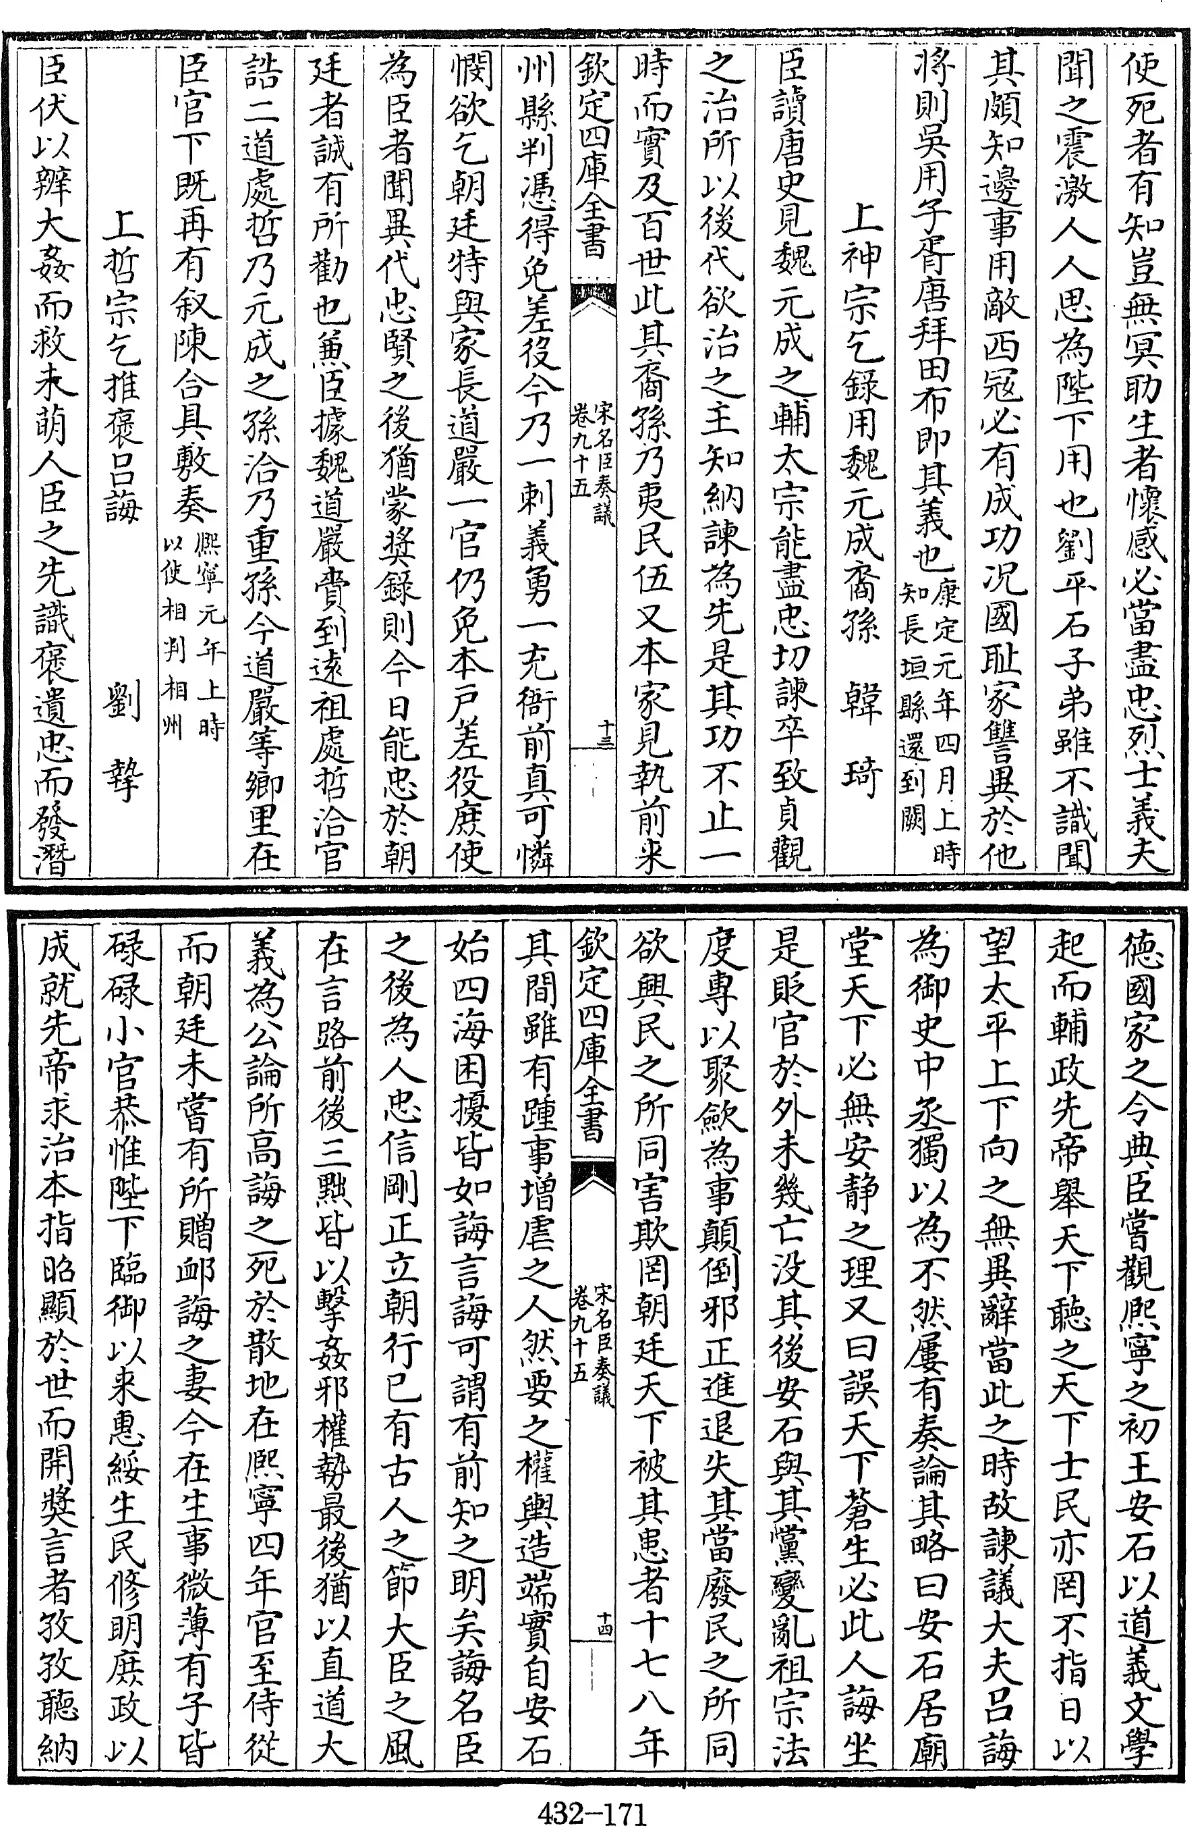 使死者有知豈無冥助生者懷感必當盡忠烈士義夫
聞之震激人人思為陛下用也劉平石子弟雖不識聞
其頗知邊事用敵西冦必有成功况國恥家讐異於他
將則吳用子胥唐拜田布即其義也康定元年四月上時知長垣縣還到闕
上神宗乞錄用魏元成裔孫　韓　琦
臣讀唐史見魏元成之輔太宗能盡忠切諫卒致貞觀
之治所以後代欲治之主知納諫為先是其功不止一
時而實及百世此其裔孫乃夷民伍又本家見執前来
欽定四庫全書　宋名臣奏議卷九十五　十三
州縣判憑得免差役今乃一刺義勇一充衙前真可憐
憫欲乞朝廷特與家長道嚴一官仍免本户差役庶使
為臣者聞異代忠賢之後猶蒙奨錄則今日能忠於朝
廷者誠有所勸也兼臣據魏道嚴賷到逺祖處哲洽官
誥二道處哲乃元成之孫洽乃重孫今道嚴等鄉里在
臣官下既再有叙陳合具敷奏熙寧元年上時以使相判相州
上哲宗乞推褒吕誨　劉　摯
臣伏以辨大姦而救未萌人臣之先識褒遺忠而發潛
德國家之令典臣嘗觀熙寧之初王安石以道義文學
起而輔政先帝舉天下聽之天下士民亦罔不指日以
望太平上下向之無異辭當此之時故諫議大夫吕誨
為御史中丞獨以為不然屢有奏論其略曰安石居廟
堂天下必無安静之理又曰誤天下蒼生必此人誨坐
是貶官於外未幾亡没其後安石與其黨變亂祖宗法
度專以聚歛為事顛倒邪正進退失其當廢民之所同
欲興民之所同害欺罔朝廷天下被其患者十七八年
欽定四庫全書　宋名臣奏議卷九十五　十四
其間雖有踵事增虐之人然要之權輿造端實自安石
始四海困擾皆如誨言誨可謂有前知之明矣誨名臣
之後為人忠信剛正立朝行已有古人之節大臣之風
在言路前後三黜皆以擊姦邪權勢最後猶以直道大
義為公論所高誨之死於散地在熙寧四年官至侍從
而朝廷未嘗有所贈䘏誨之妻今在生事微薄有子皆
碌碌小官恭惟陛下臨御以来惠綏生民修明庶政以
成就先帝求治本指昭顯於世而開奬言者孜孜聽納
432-171